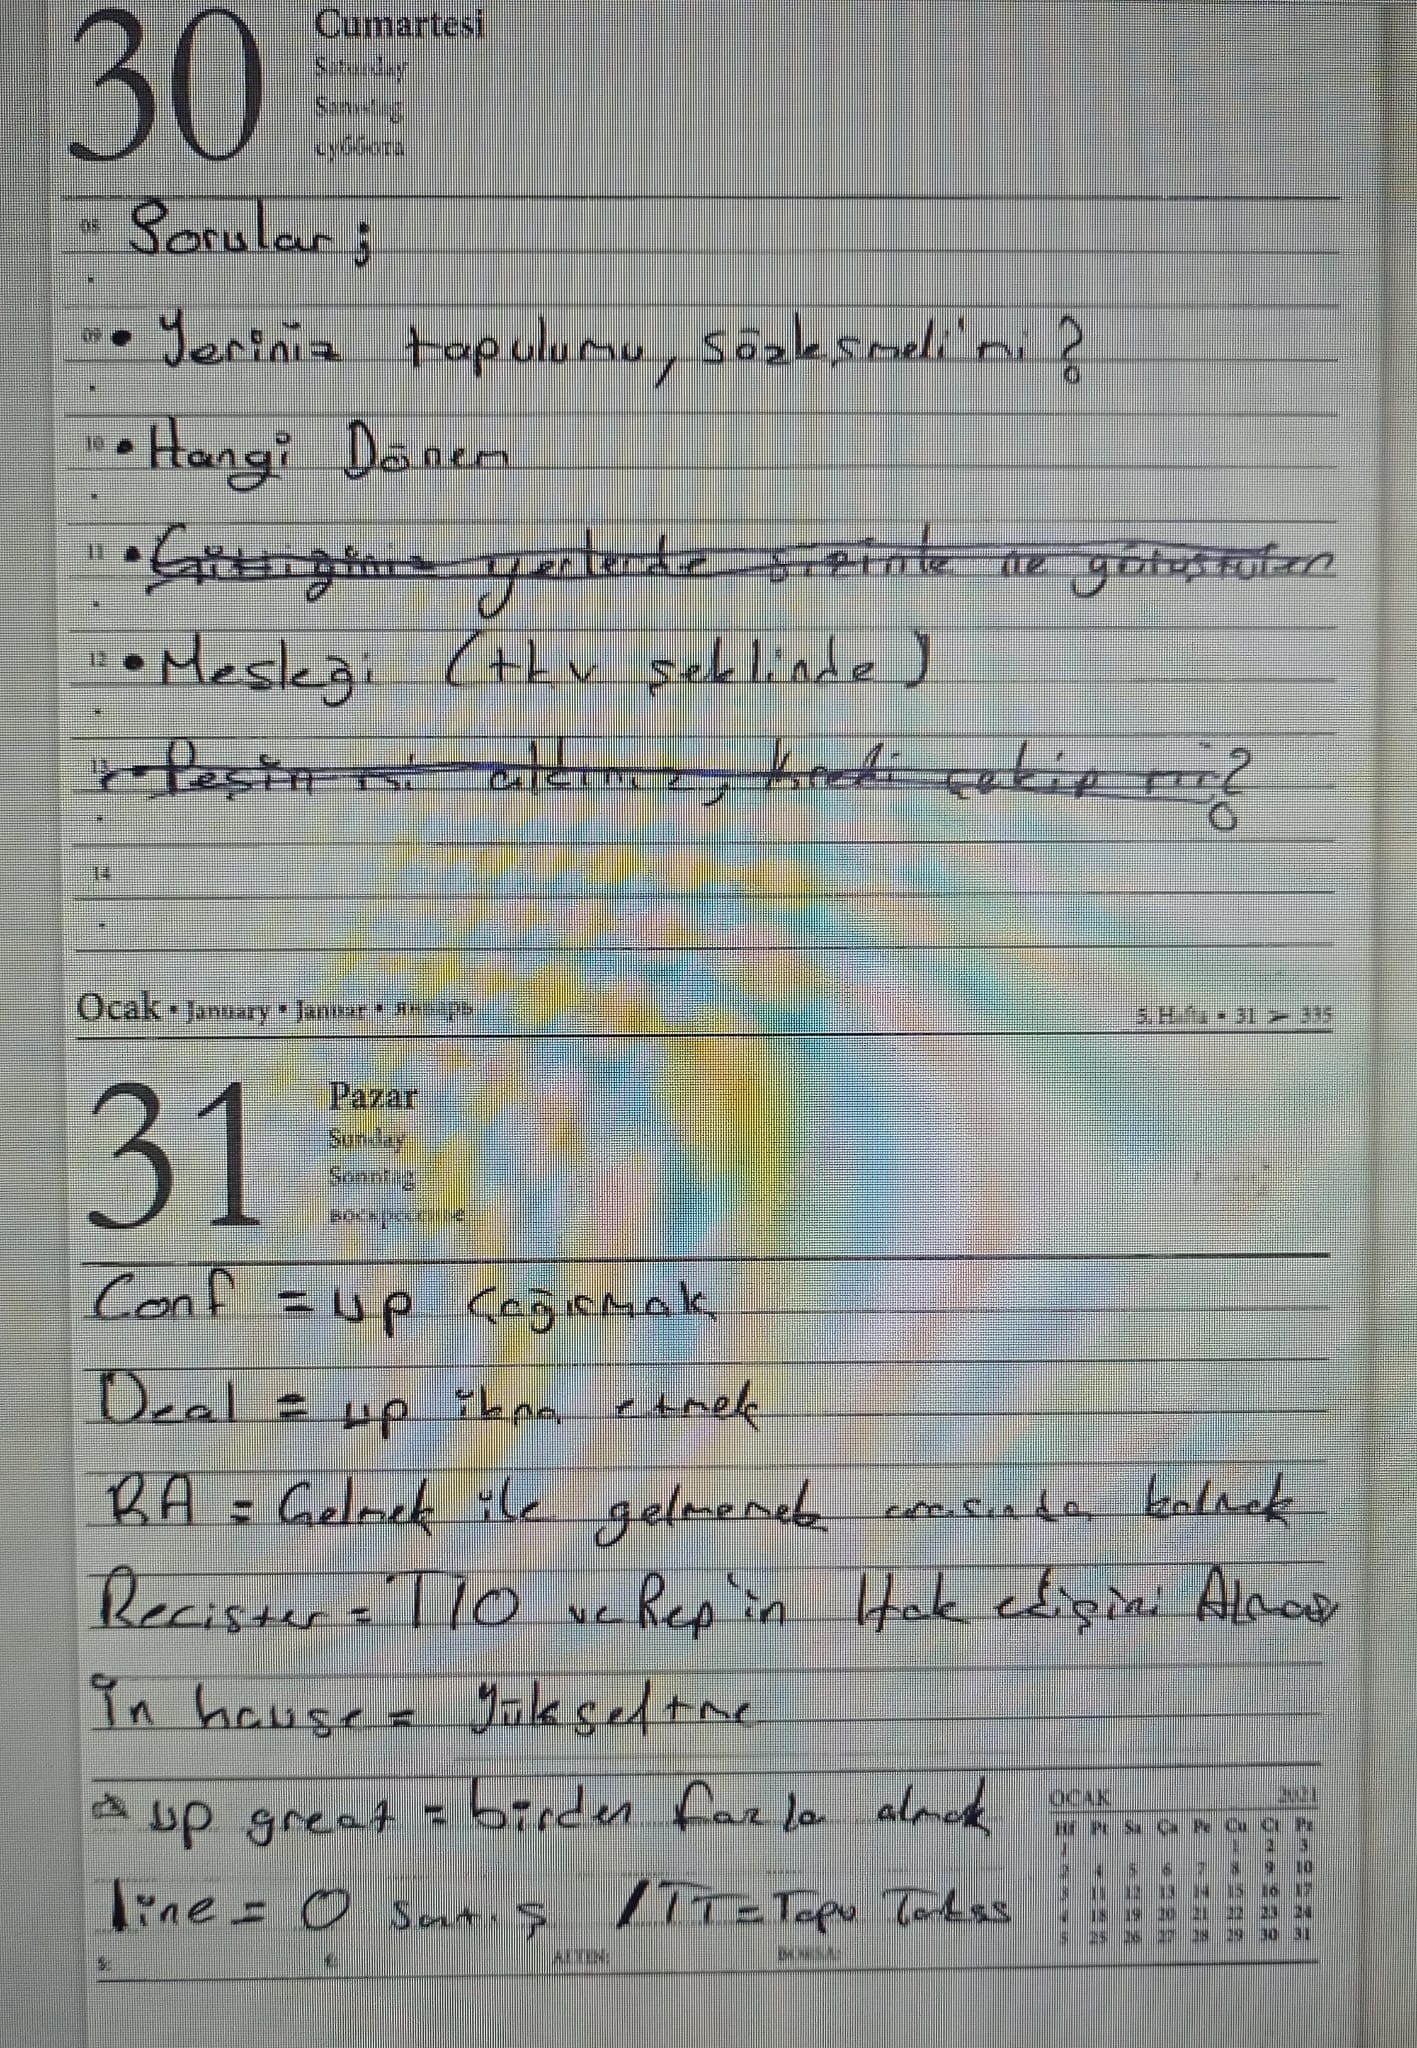 30 Cumartesi
Saturday
Samstag
суббота
08 Sorular;
09 • Yeriniz tapulumu, sözleşmeli'mi?
10 • Hangi Dönem
11 • Gittiğiniz yerlerde sizinle ne görüştüler
12 • Mesleği (tkv şeklinde)
13 Peşin mi aldınız, kredi çekip mi?
14
Ocak • January • Januar • январь 5. Hafta • 31 > 335
31 Pazar
Sunday
Sonntag
воскресенье
Conf = up Çağırmak
Deal = up ikna etmek
BA = Gelmek ile gelmemek arasında kalmak
Recister = T/O ve Rep'in Hak edişini Alması
in hause = Yükseltme
up great = birden fazla almak
line = 0 satış / TT = Tapu Takas
OCAK 2021
Hf Pt Sa Ça Pe Cu Ct Pz
1 1 2 3
2 4 5 6 7 8 9 10
3 11 12 13 14 15 16 17
4 18 19 20 21 22 23 24
5 25 26 27 28 29 30 31
$: €: ALTIN: